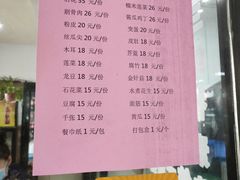 35 元/份
涮骨肉 26 元/份
粉皮 20 元/份
丝瓜尖 20 元/份
木耳 18 元/份
莲菜 18 元/份
龙豆 18 元/份
石花菜 15 元/份
豆腐 15 元/份
千张 15 元/份
餐巾纸 1 元/包
糯米莲菜 26 元/份
酱瓜鸡丁 26 元/份
变蛋 20 元/份
皮肚 18 元/份
苔菜 18 元/份
腐竹 18 元/份
金针菇 18 元/份
水煮花生 15 元/份
面筋 15 元/份
黄瓜 15 元/份
打包盒 1 元/个